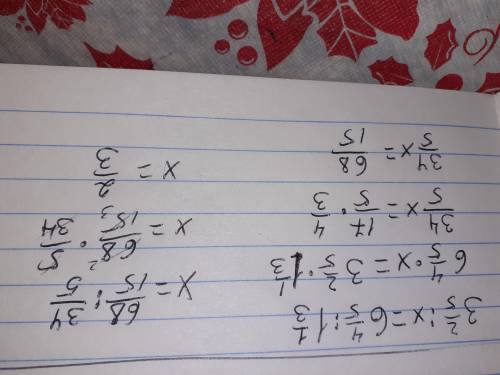 3 2/5 : x = 6 4/5 : 1 1/3
6 4/5 · x = 3 2/5 · 1 1/3
34/5 x = 17/5 · 4/3
34/5 x = 68/15
x = 68/15 : 34/5
x = 68²/15₃ · 5/34
x = 2/3